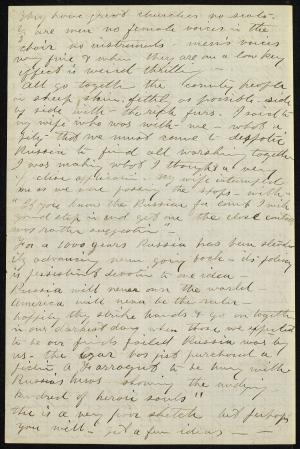 They have great churches no seats
& are men no female voices in the
choir no instruments mens voices
very fine & when they are on a low key
effect is weird thrilling
all go together the country people
in sheep skin filthy as possible side
by side with the rich furs. I said to
my wife who was with me what a
pity that we must come to despotic
Russia to find all worshiping together
I was making what I thought a very
close application my wife interrupted
me as we were passing the shops with
If you knew the Russian for
step in and get me the
was rather suggestive"
For a 1000 years Russia has been stead
ily advancing never going back its policy
is persistent devotion to one idea
Russia will never own the world
America will never be the ruler
happily they strike hands & go on together
in our darkest day when those we expected
to be our friends failed Russia was by
us. the czar has just purchased a
picture, a Farragut to be hung with
Russias heros showing the undying
kindred of heroic souls"
this is a very poor sketch but perhaps
you will get a few ideas